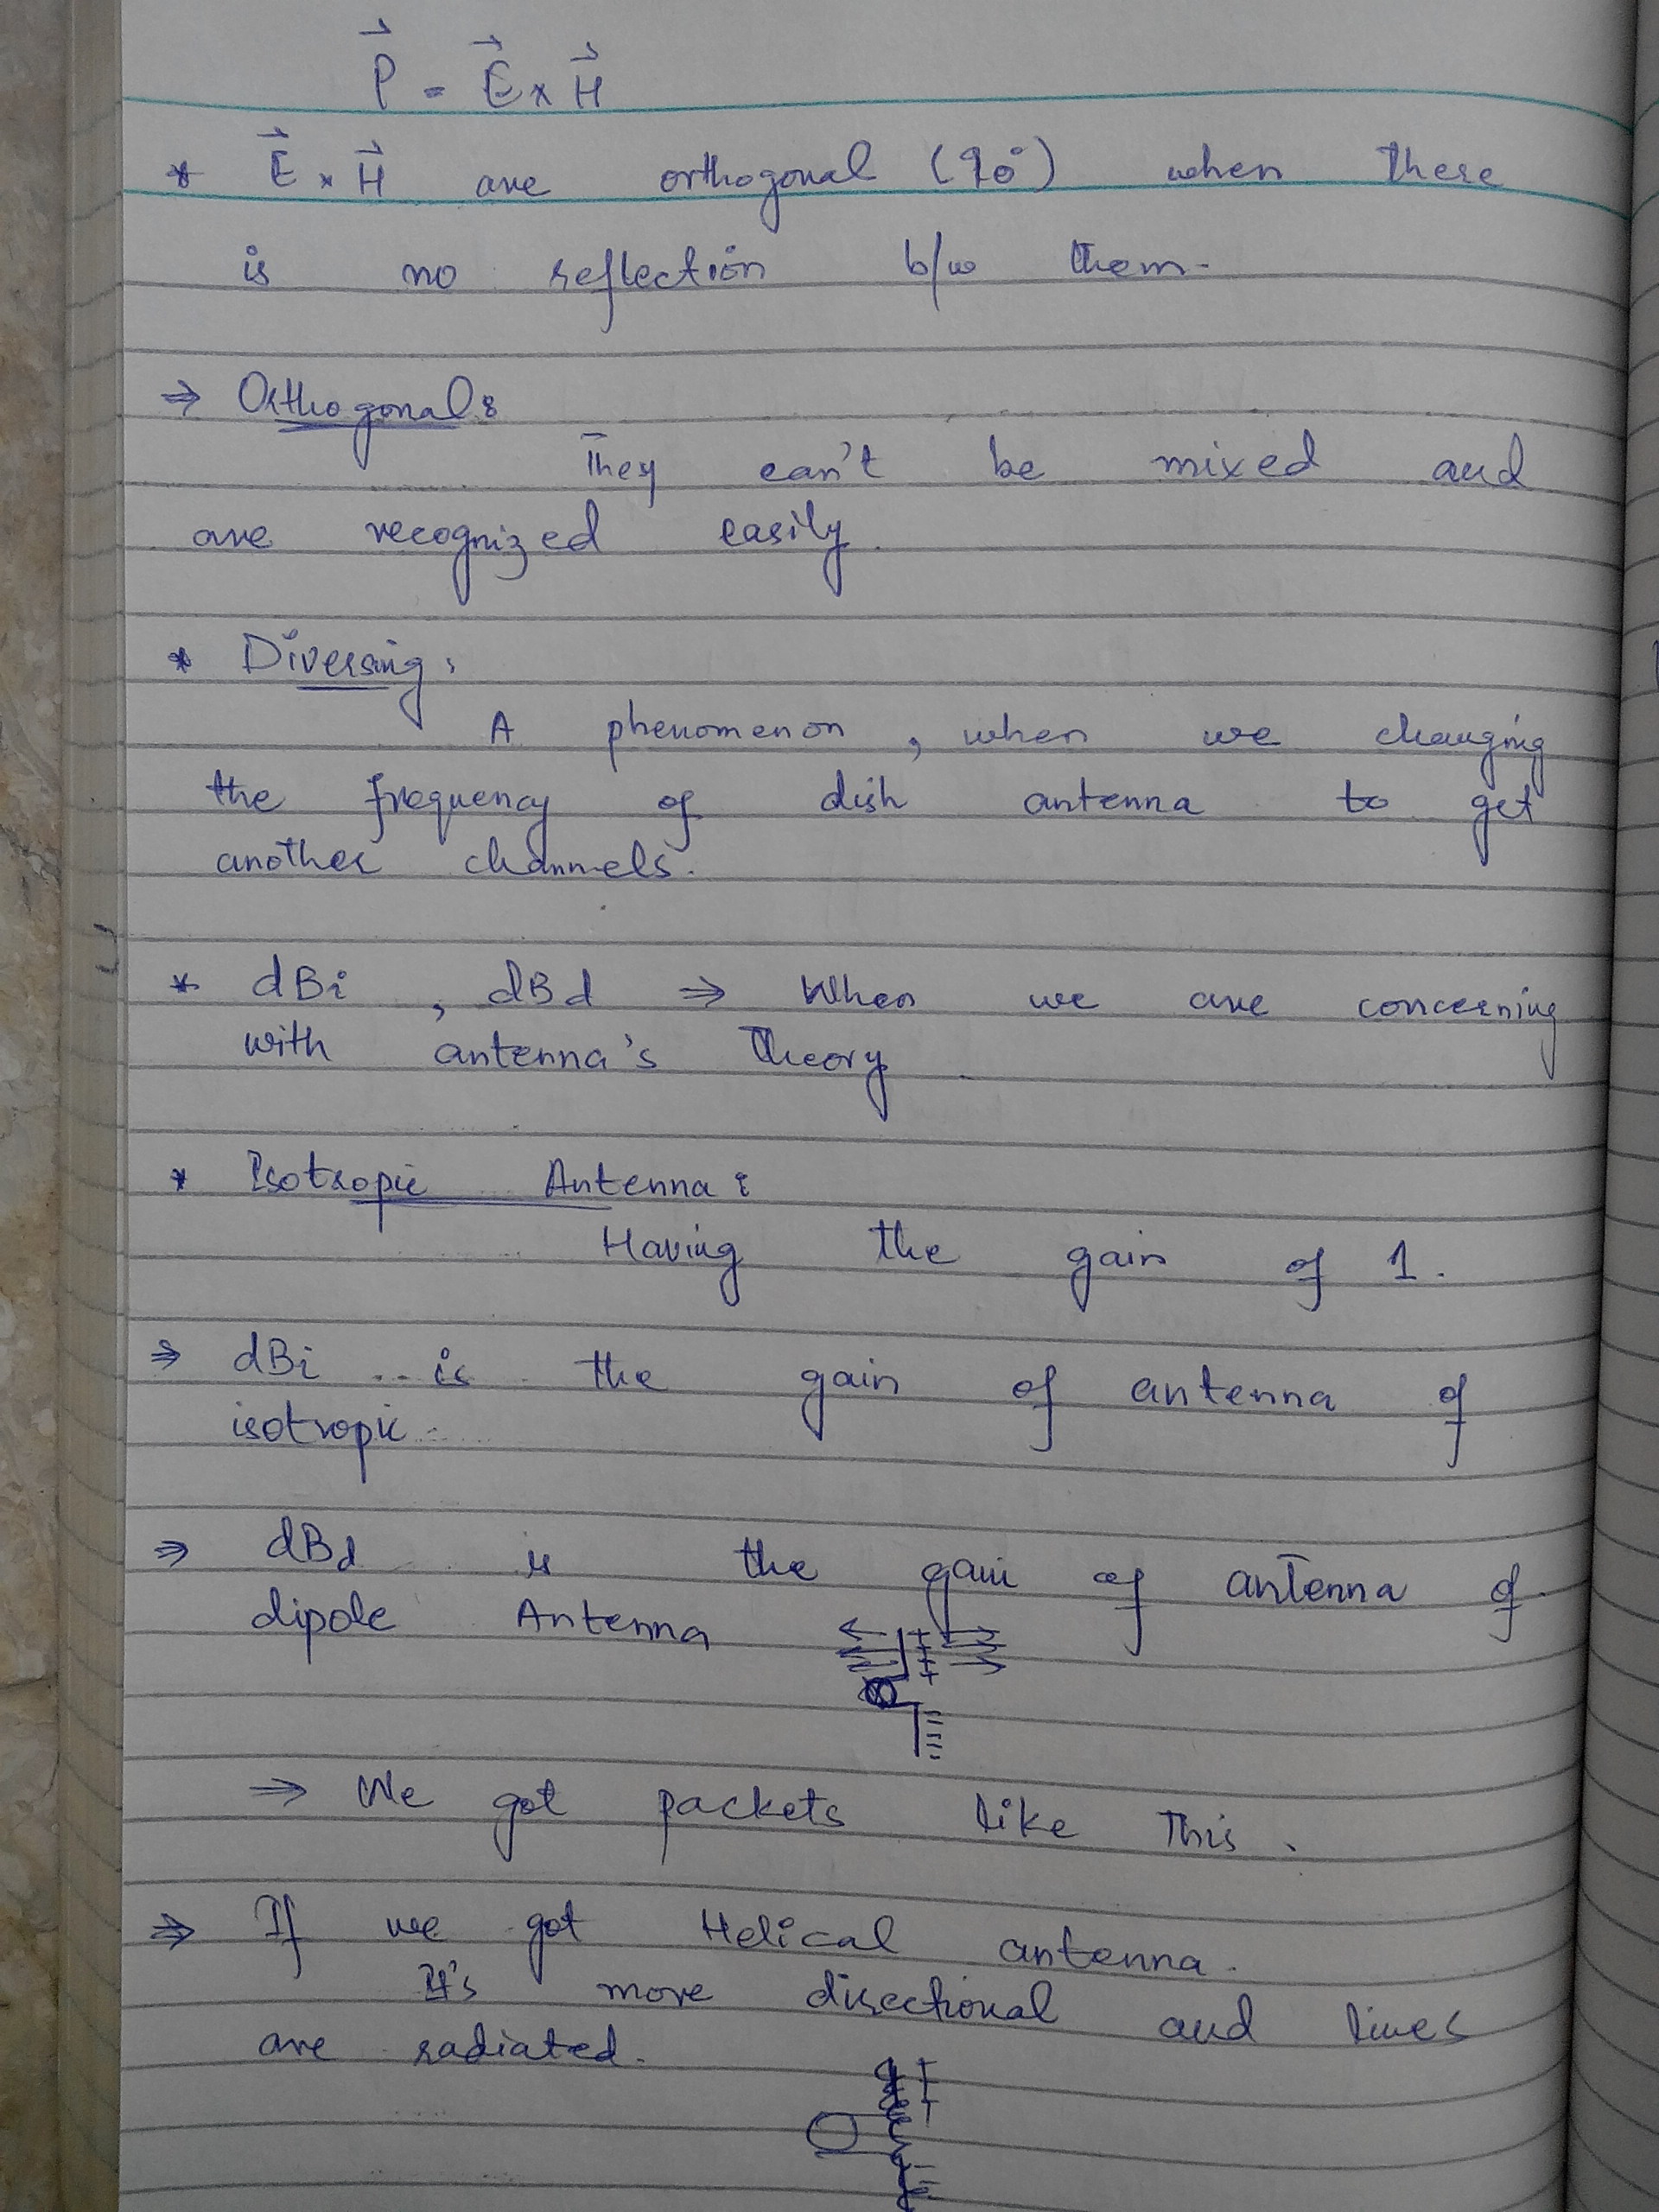 P⃗ = E⃗ x H⃗
* E⃗ x H⃗ are orthogonal (90°) when there
is no reflection b/w them.
⇒ Orthogonal:
They can't be mixed and
are recognized easily.
* Diversing:
A phenomenon, when we changing
the frequency of dish antenna to get
another channels.
* dBi, dBd ⇒ When we are concerning
with antenna's theory.
* Isotropic Antenna:
Having the gain of 1.
⇒ dBi is the gain of antenna of
isotropic
⇒ dBd is the gain of antenna of
dipole Antenna
⇒ We got packets like this.
⇒ If we got Helical antenna.
It's more directional and lines
are radiated.